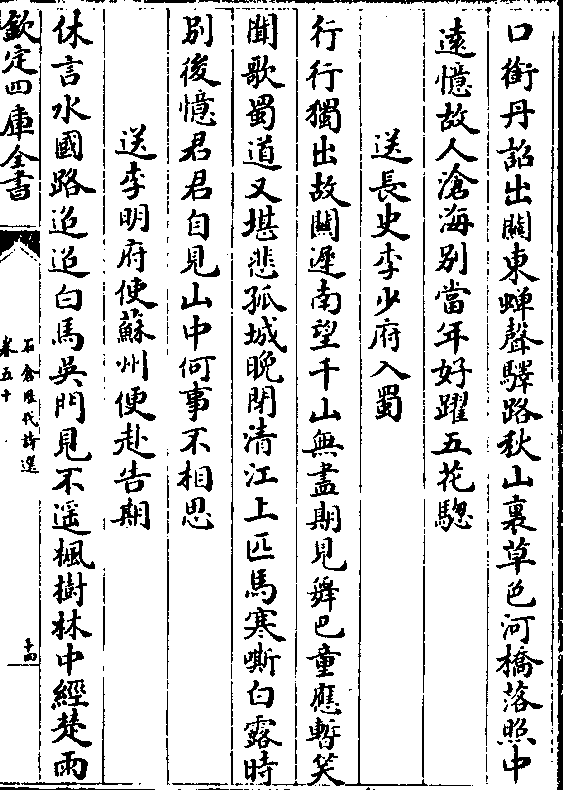 口銜丹詔出關東蟬聲驛路秋山裏草色河橋落照中
遠憶故人滄海别當年好躍五花驄
送長史李少府入蜀
行行獨出故關遲南望千山無盡期見舞巴童應暫笑
聞歌蜀道又堪悲孤城晚閉清江上匹馬寒嘶白露時
别後憶君君自見山中何事不相思
送李明府使蘇州便赴告期
休言水國路迢迢白馬吳門見不遥楓樹林中經楚雨
欽定四庫全書
石倉歴代詩選
卷五十
十四